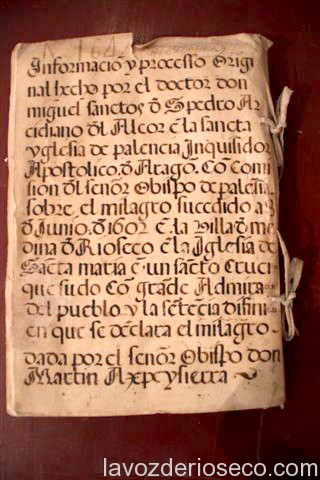 Informacio y processo Origi
nal hecho por el doctor don
miguel sanctos đ Spedro Ar
cidiano đl Alcor ē la sancta
yglesia de palencia, Inquisidor
Apostolico, đ Aragō. Cō Comi
sion đl señor Obispo de palēsia
sobre el milagro succedido a 8
đ Junio, đ 1602 ē la Villa đ me
dina đ Rioseco ē la Iglesia de
Sācta maria ē un sācto Cruci
que sudo Cō grāde Admira
del pueblo y la sētēcia difini
en que se declara el milagro
dada por el señor Obispo don
Martin Axpe y sierra
lavozderioseco.com